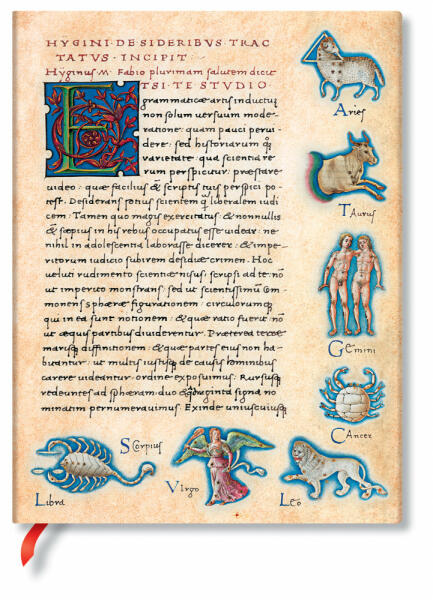 HYGINI·DE SIDERIBVS·TRAC
TATVS·INCIPIT·
Hyginus·M·Fabio plurimam salutem dicit
E TSI·TE STUDIO
grammaticæ artis inductū
non solum uersuum mode-
ratione: quam pauci perui-
dere: sed historiarum q̄;
uarietate: qua scientia re-
rum perspicitur: præstare
uideo: quæ facilius & scriptis tuis perspici po-
test. Desiderans potius scientem q̄ liberalem iudi
cem. Tamen quo magis exercitatus: & nonnullis
& sæpius in his rebus occupatus esse uidear: ne-
nihil in adolescentia laborasse dicerer: & impe-
ritorum iudicio subirem desidiæ crimen. Hoc
ueluti rudimento scientiæ nisus: scripsi ad te: nō
ut imperito monstrans: sed ut scientissimū com
monens sphæræ figurationem: circulorumq;
qui in ea sunt notionem: & quæ ratio fuerit nō
ut æquis partibus diuiderentur. Præterea terræ
marisq; diffinitionem: & quæ partes eius non ha-
buantur: ut multis iustisq; de causis hominibus
carere uideantur: ordine exposuimus. Rursusq;
redeuntes ad sphæram: duo & q̄draginta signa no
minatim pernumerauimus. Exinde uniuscuiusq;
Aries
Taurus
Gemini
Cancer
Leo
Virgo
Scorpius
Libra